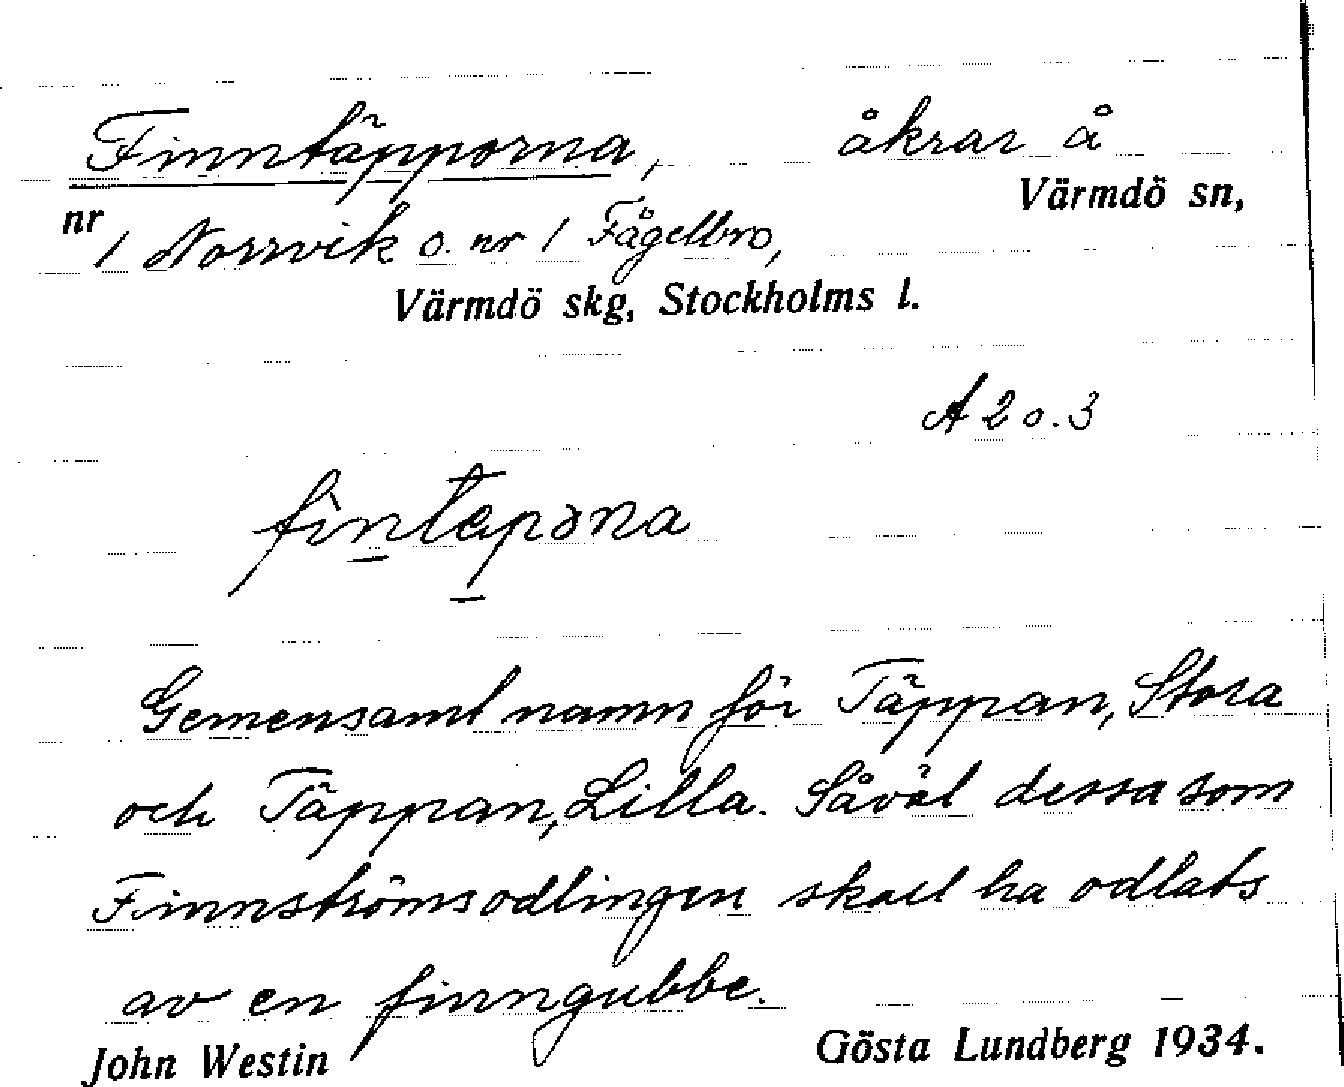 Finntäpporna, åkrar å
Värmdö sn,
nr 1 Norrvik o. nr 1 Fågelbro,
Värmdö skg, Stockholms l.
A 2 o. 3
fìntepɔna
Gemensamt namn för Täppan, Stora
och Täppan, Lilla. Såväl dessa som
Finnströmsodlingen skall ha odlats
av en finngubbe.
John Westin Gösta Lundberg 1934.